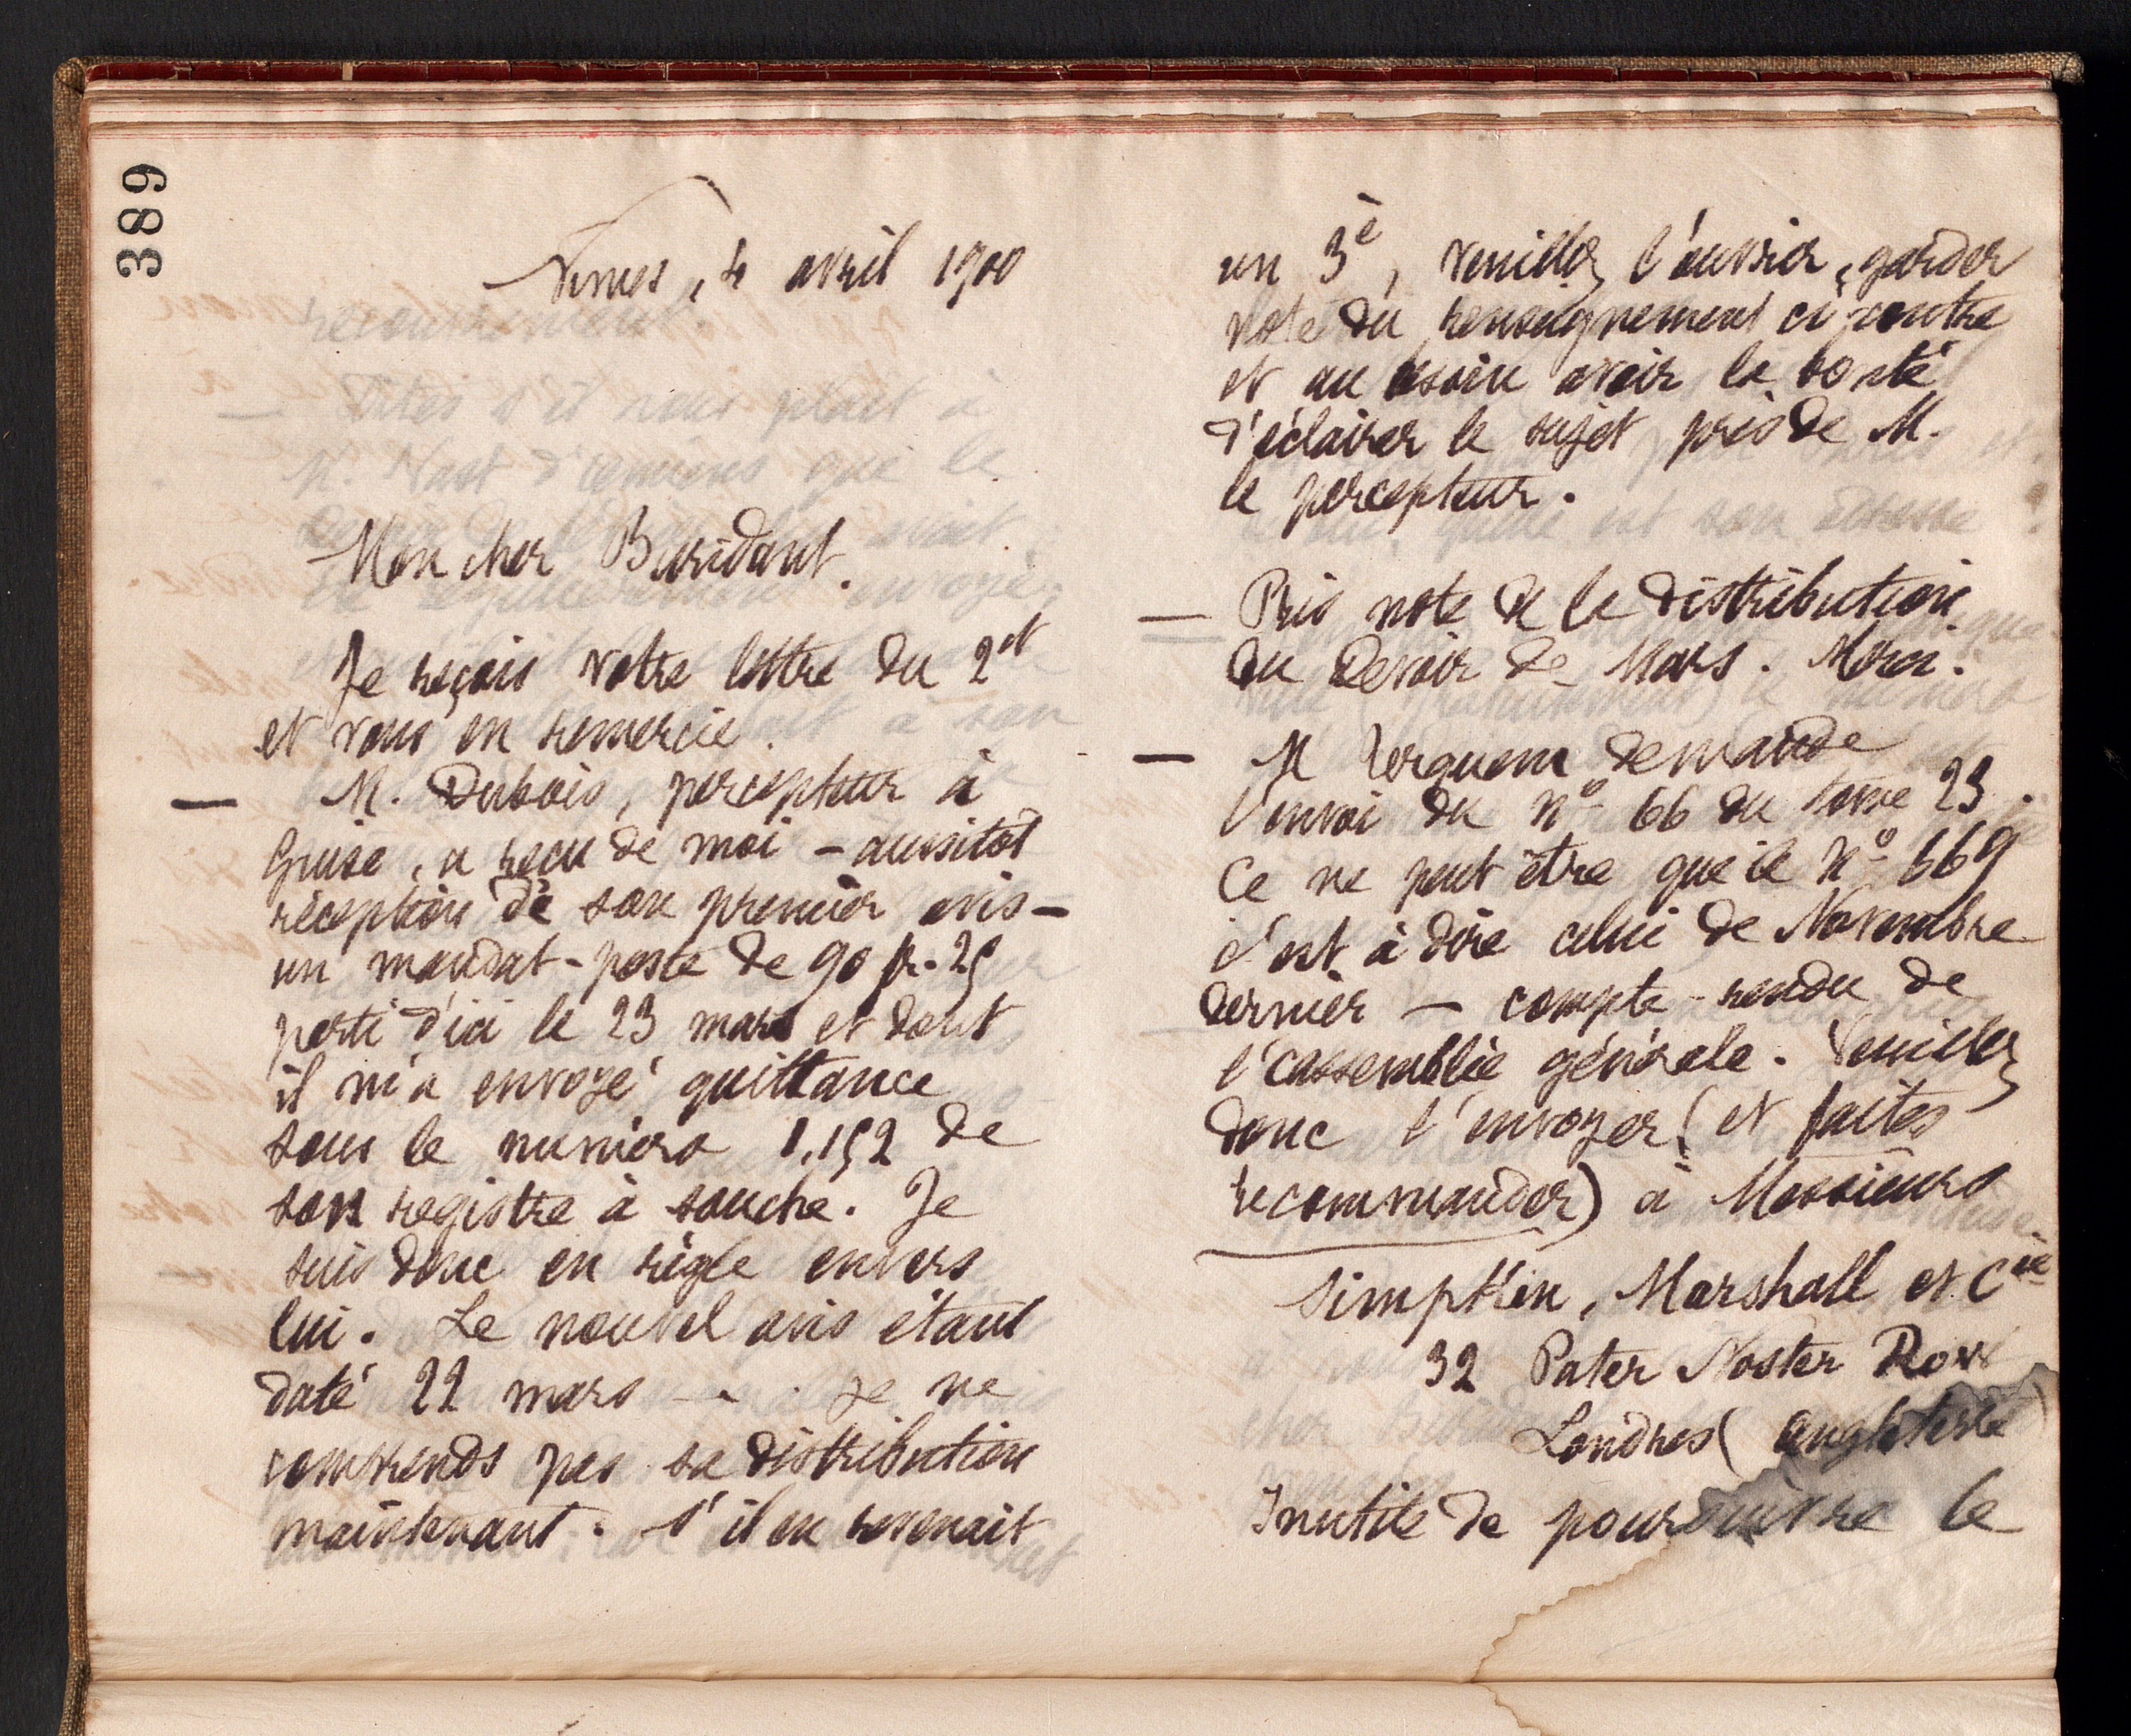 389
Nimes, 4 avril 1900
Mon cher Buridant.
Je reçois votre lettre du 2 et
et vous en remercie.
— M. Dubois, percepteur à
Guise, a reçu de moi – aussitôt
réception de son premier avis –
un mandat-poste de 90 fr. 25
parti d'ici le 23 mars et dont
il m'a envoyé quittance
sous le numéro 1,152 de
son registre à souche. Je
suis donc en règle envers
lui. Le nouvel avis étant
daté 22 mars — . je ne
comprends pas sa distribution
maintenant. S'il en revenait
un 3è, veuillez l'ouvrir, garder
note du renseignement ci contre
et au besoin avoir la bonté
d'éclairer le sujet près de M.
le percepteur.
— Pris note de la distribution
du Devoir de Mars. Merci.
— M demande
l'envoi du Nº 66 du tome 23.
Ce ne peut être que le Nº 669
c'est à dire celui de Novembre
dernier — compte-rendu de
l'assemblée générale. Veuillez
donc l'envoyer (et faites
recommander) à Messieurs
Simpkin, Marshall et Cie
32 Pater Noster Row
Londres (angleterre)
Inutile de poursuivre le